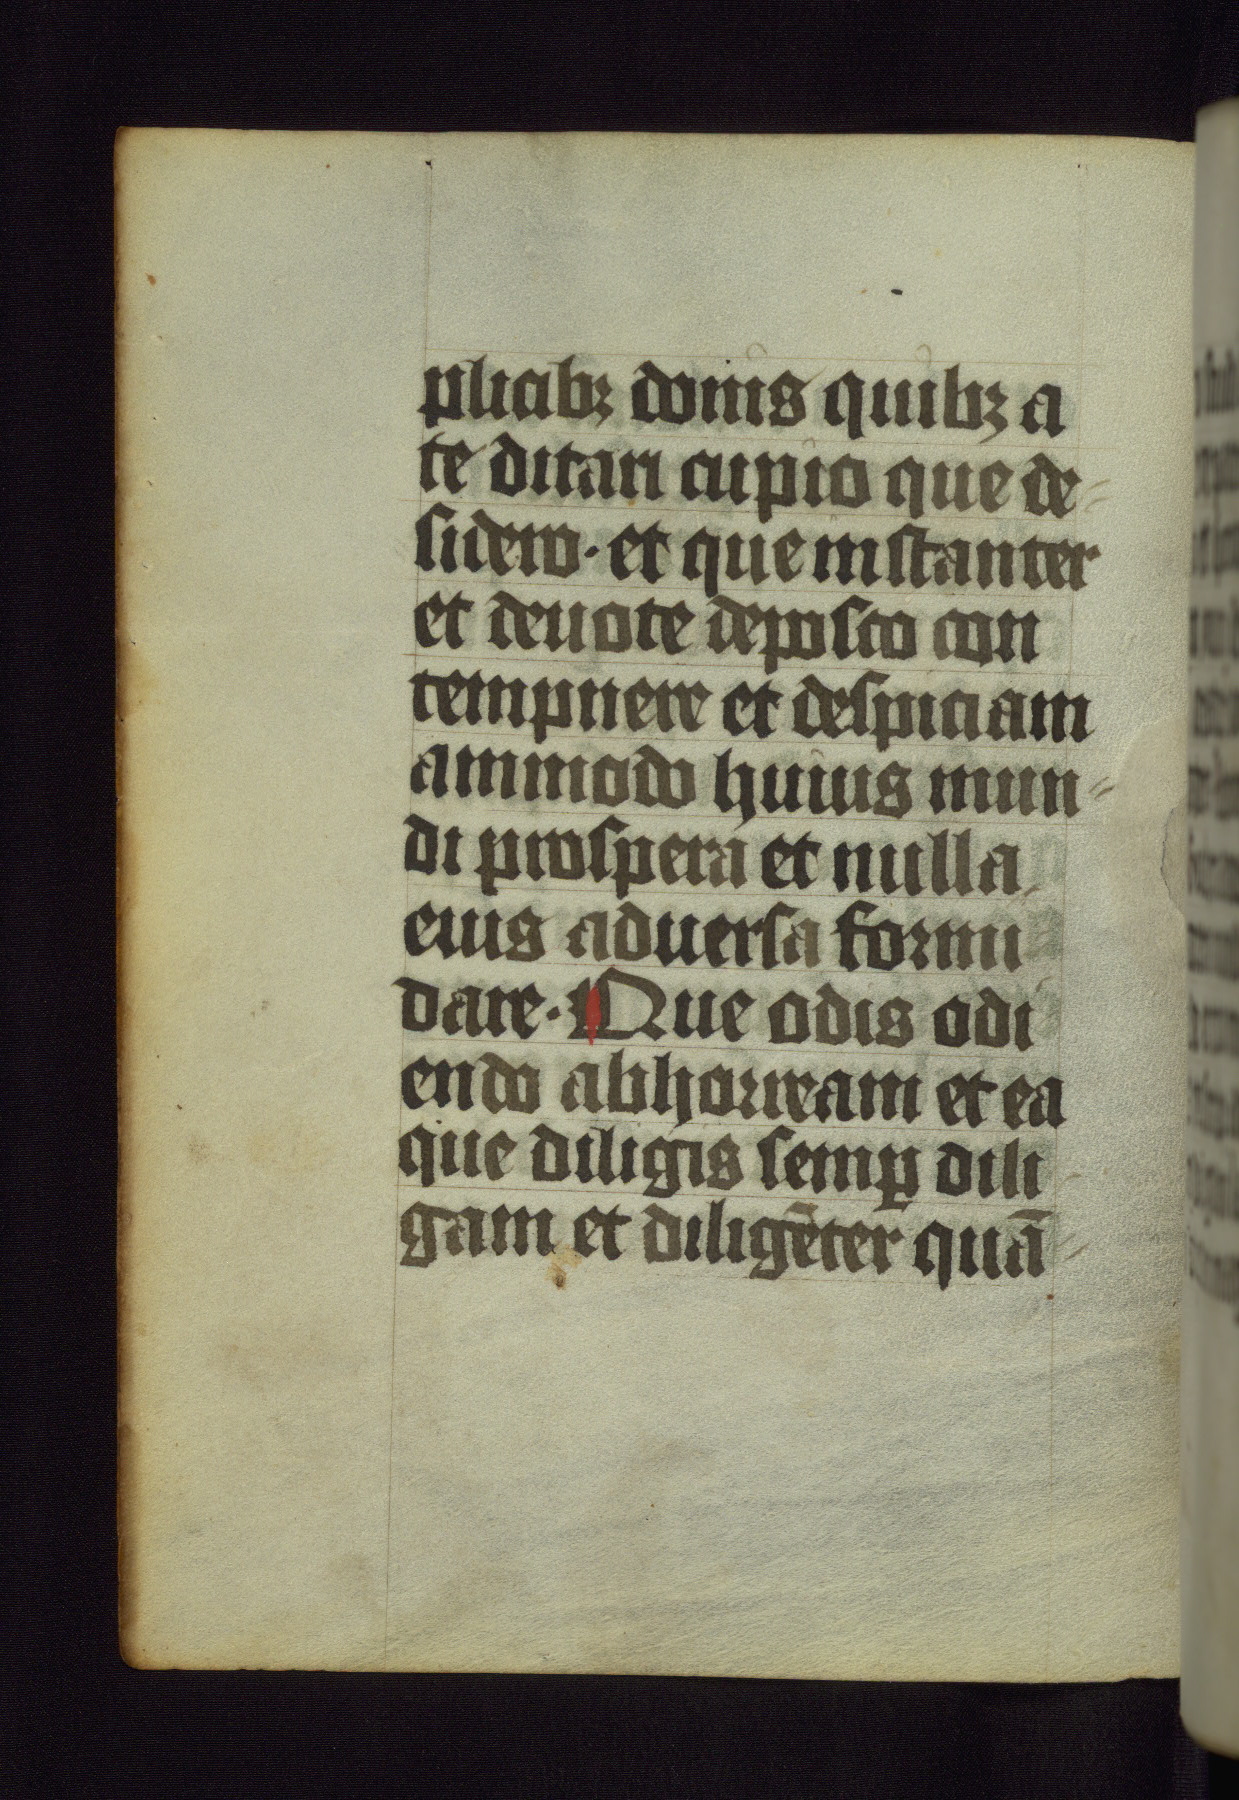 plicibꝫ donis quibꝫ a
te ditari cupio que de-
sidero · et que instanter
et deuote deposco con
tempnere et despiciam
ammodo huius mun-
di prospera et nulla
eius aduersa formi
dare · Que odis odi
endo abhorream et ea
que diligis semꝑ dili
gam et diligēter quā